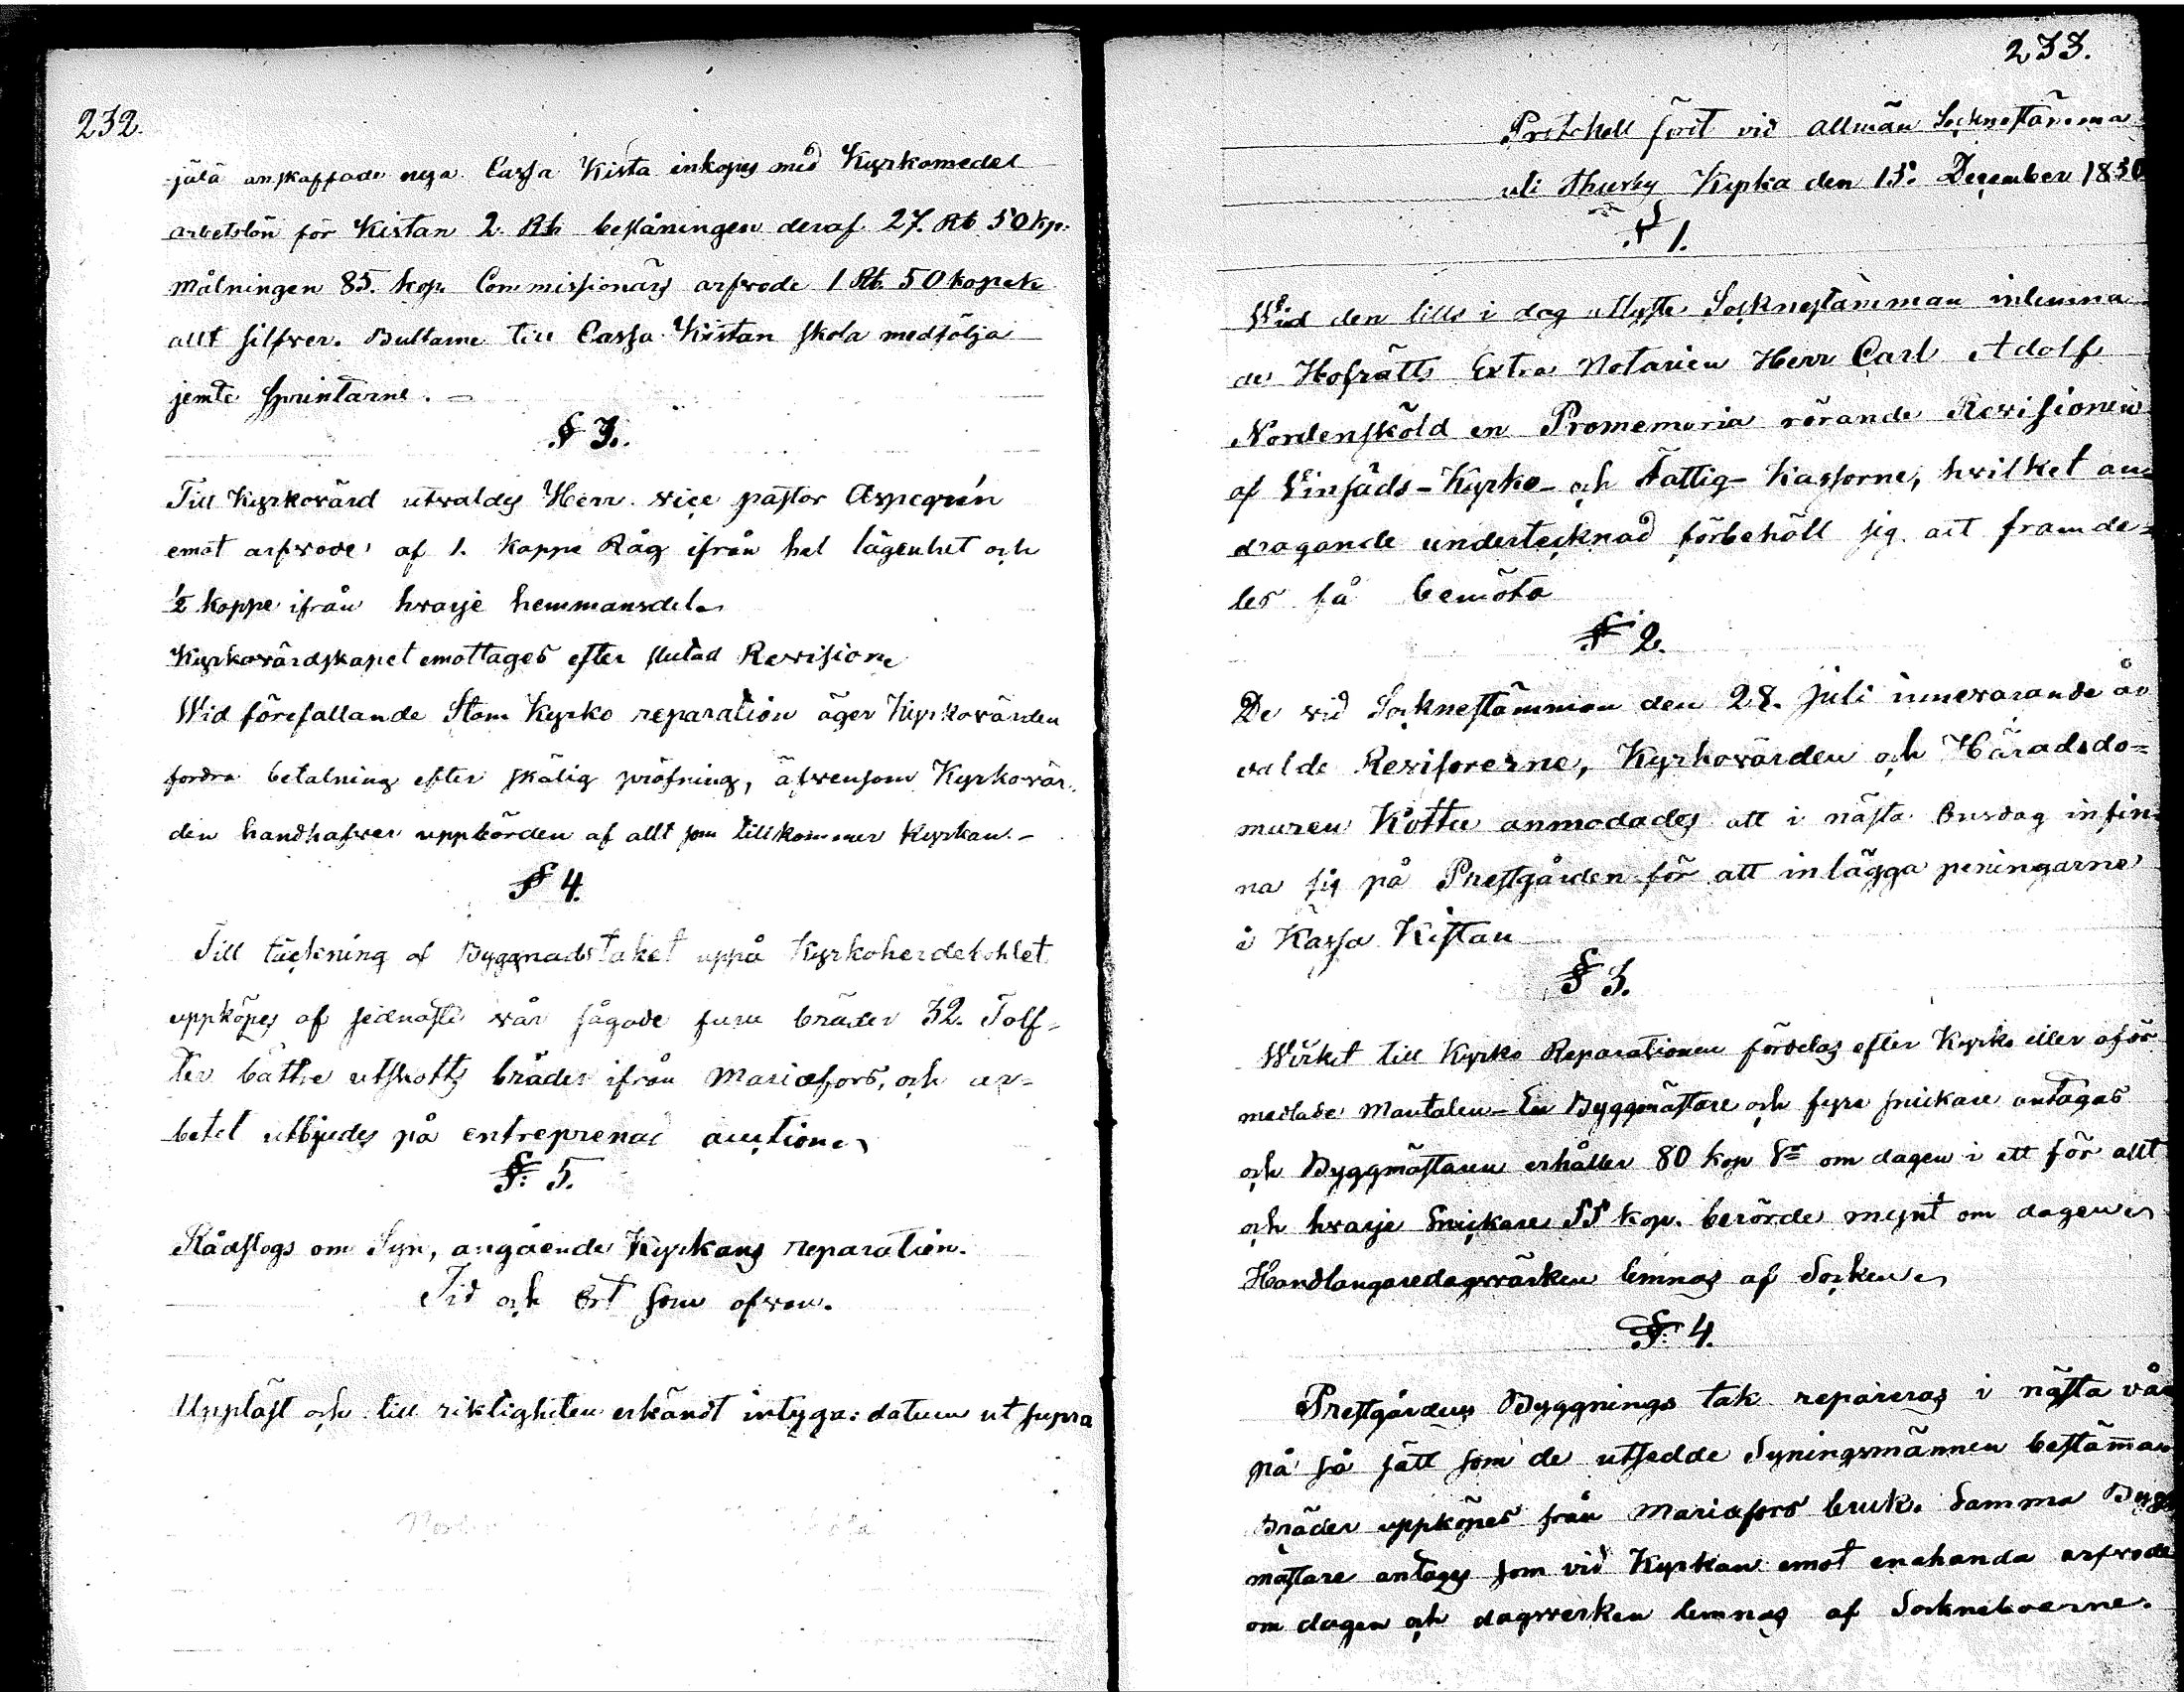 232.
jälä anskaffade nya Cassa Kista inköpes med Kyrkomedel
arbetslön för Kistan 2. Rb beslåningen deraf 27. Rb 50 kop:
målningen 85. kop. Commissionärs arfvode 1 Rb. 50 kopek
allt silfver. Bultarne till Cassa Kistan skola medfölja
jemte sprintarne. —
§ 3.
Till Kyrkovärd utvaldes Herr vice pastor Aspegrén
emot arfvode af 1. kappe Råg ifrån hel lägenhet och
½ kappe ifrån hvarje hemmansdel
Kyrkovärdskapet emottages efter slutad Revision
Wid förefallande Stom Kyrko reparation äger Kyrkovärden
fordra betalning efter skälig pröfning, äfvensom Kyrkovär-
den handhafver uppbörden af allt som tillkommer Kyrkan. –
§ 4.
Till täckning af Byggnadstaket uppå Kyrkoherdebohlet
uppköpes af sednaste vår sågade furu bräder 32. Tolf-
ter bättre utskotts bräder ifrån Mariæfors, och ar-
betet utbjudes på entreprenad auction
§: 5.
Rådslogs om Syn, angående Kyrkans reparation.
Tid och Ort som ofvan.
Uppläst och till riktigheten erkändt intyga: datum ut supra
233.
Protokoll fördt vid allmän Socknestämma
uti Thusby Kyrka den 15. December 1830
§ 1.
Wid den tills i dag utlyste Socknestämman inlemna-
de Hofrätts Extra Notarien Herr Carl Adolf
Nordensköld en Promemoria rörande Revisionen
af Linsäds-Kyrko- och Fattig- Kassorne, hvilket an-
dragande undertecknad förbehöll sig att framde=
les få bemöta
§ 2.
De vid Socknestämman den 28. Juli innevarande år
valde Revisorerne, Kyrkovärden och Häradsdo=
maren Kotte anmodades att i nästa Onsdag infin-
na sig på Prestgården för att inlägga peningarne
i Kassa Kistan
§ 3.
Wirket till Kyrko Reparationen fördelas efter Kyrko eller oför
medlade Mantalen – En Byggmästare och fyra snickare antagas
och Byggmästaren erhåller 80 kop Sr om dagen i ett för allt
och hvarje Snickare 55 kop. berörde mynt om dagen
Handlangaredagsvärken lemnas af Socken
§: 4.
Prestgårdens Byggnings tak repareras i nästa vår
på så sätt som de utsedde Syningsmännen bestämma
Bräder uppköpes från Mariæfors bruk. Samma Bygg
mästare antages som vid Kyrkan emot enahanda arfvode
om dagen och dagsverken lemnas af Sockneboerne.